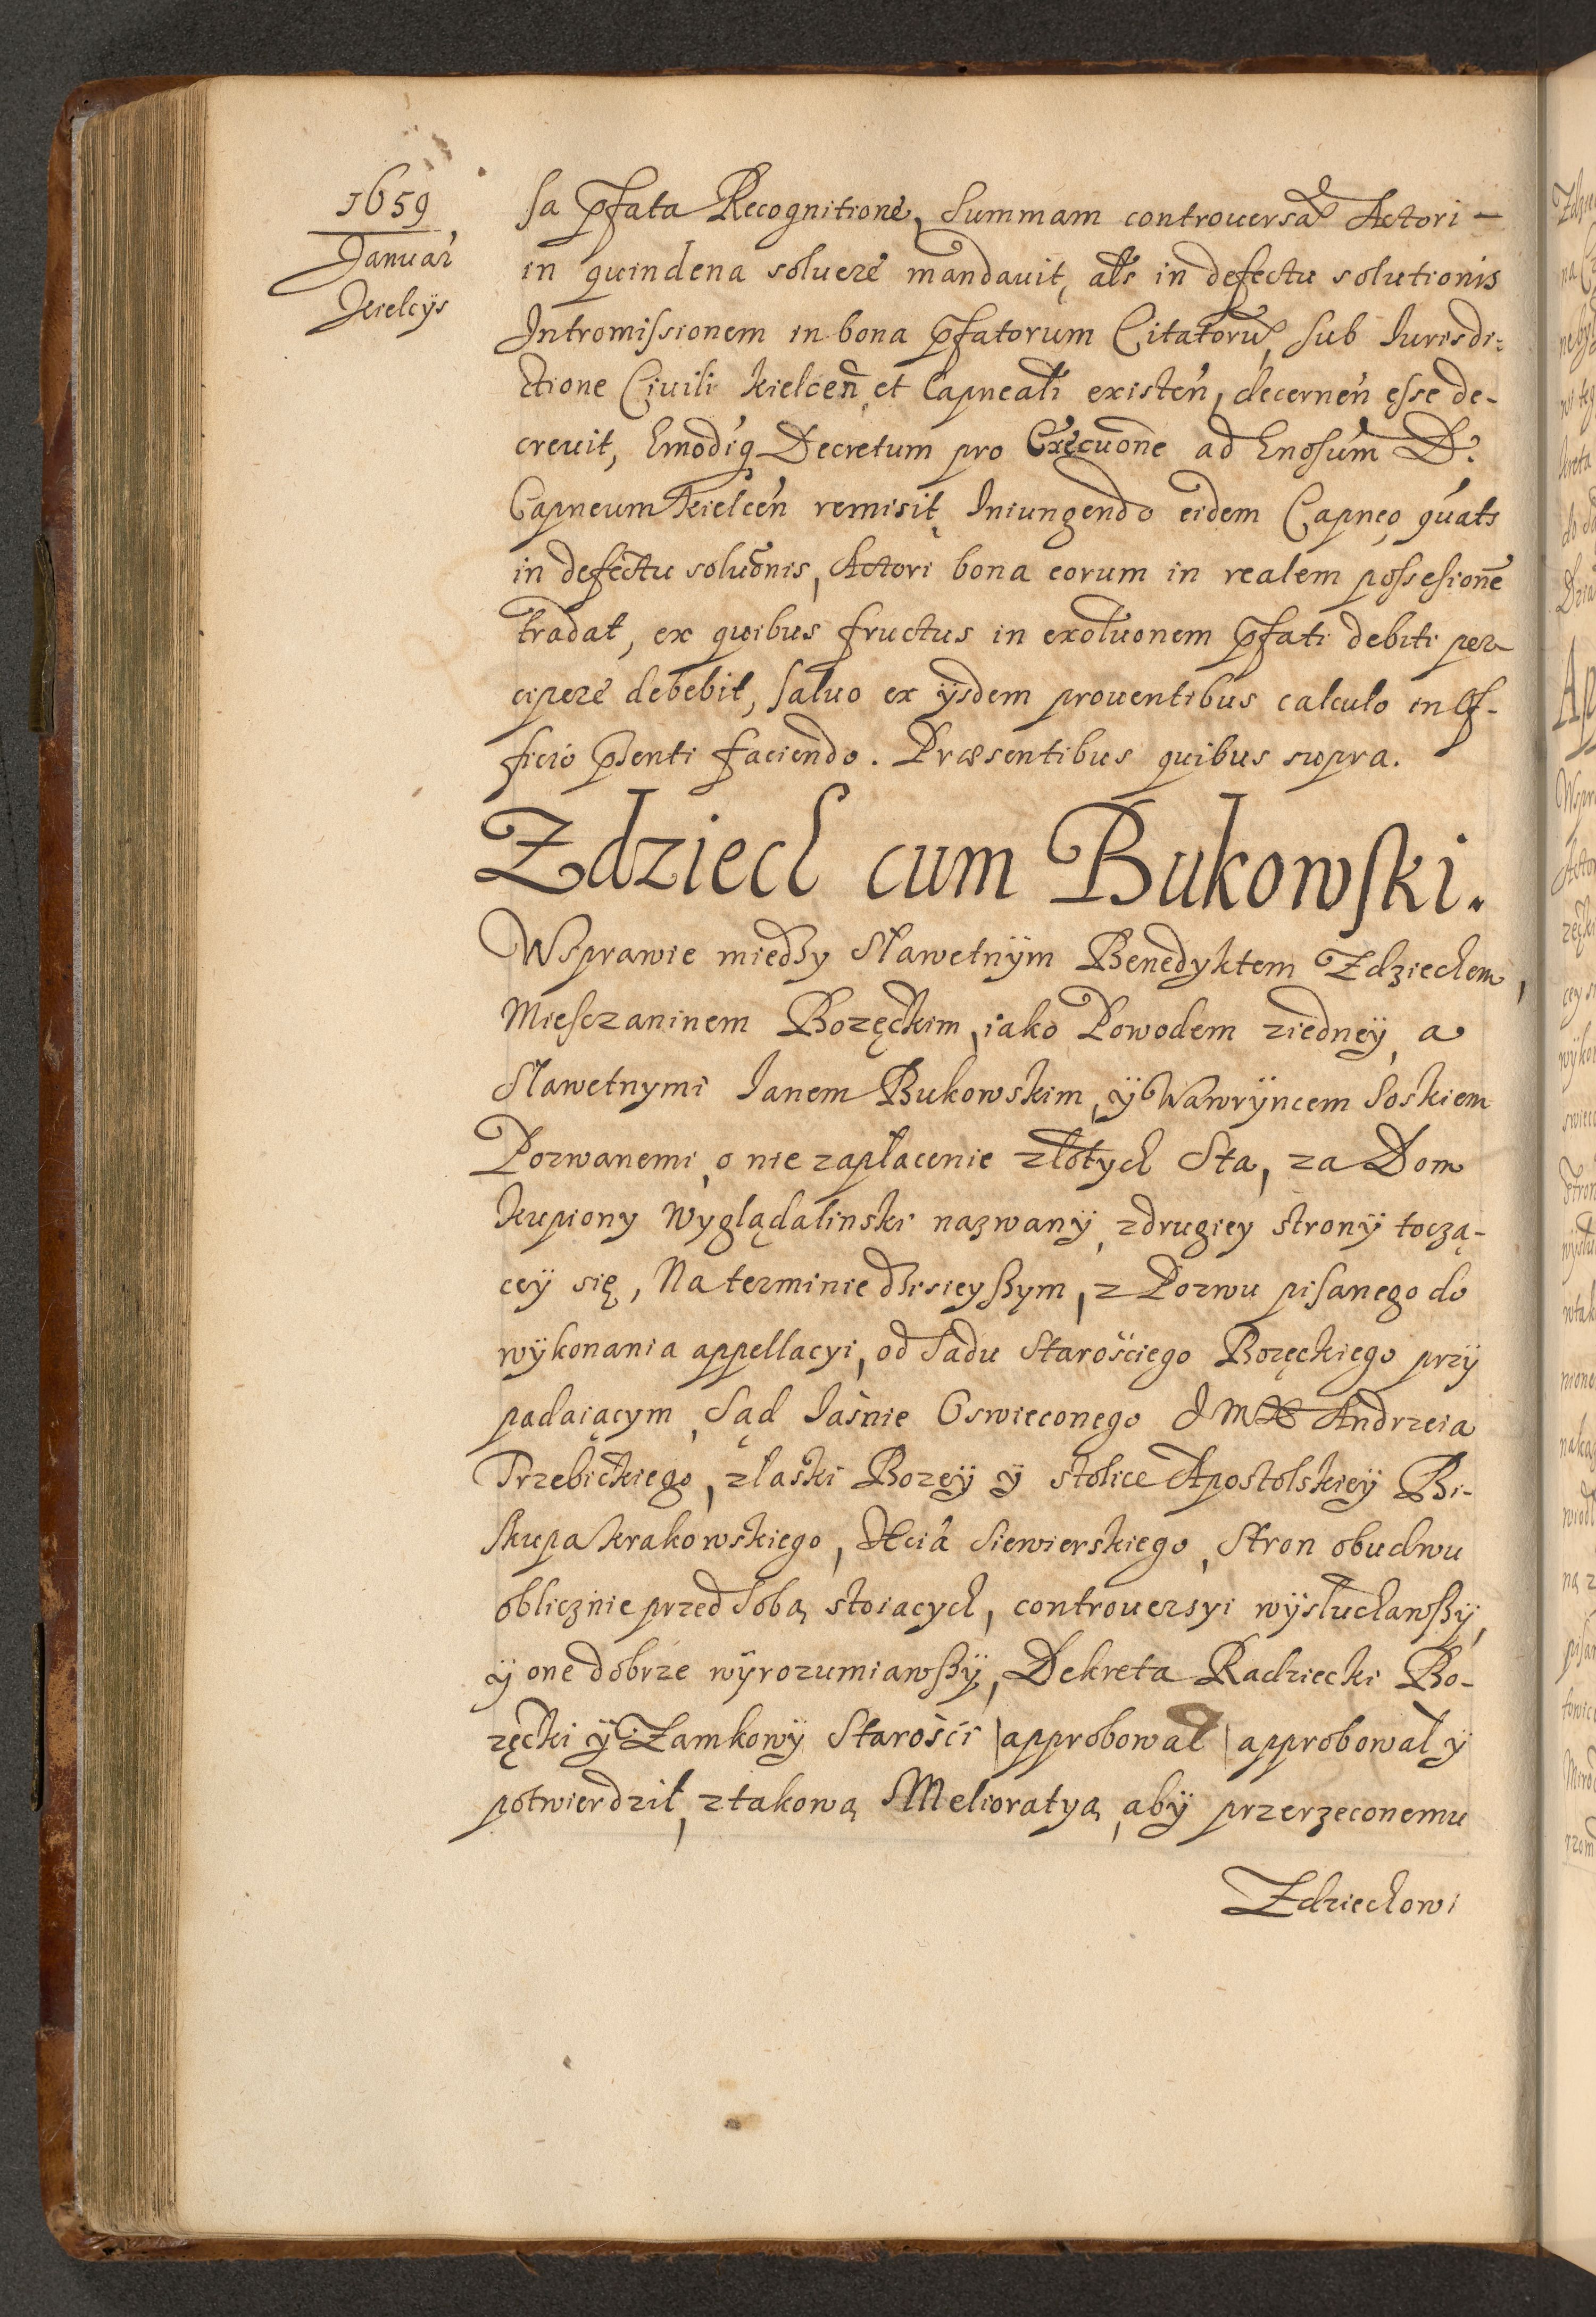 1659
Januar
Kielcÿs
sa pfata Recognitione, Summam controuersa Actori —
in quindena soluere mandauit, als in defectu solutionis
Intromissionem in bona pfatorum Citatoru, sub Iurisdi=
ctione Ciuili Kielcen, et Capneali existen, decernen esse de-
creuit, Decretum pro Execuone ad D.
Capneum Kielcen remisit, Iniungendo eidem Capneo, quats
in defectu soluonis, Actori bona eorum in realem possesione
tradat, ex quibus fructus in exoluonem pfati debiti per-
cipere debebit, saluo ex ÿsdem prouentibus calculo in Of-
ficio psenti faciendo. Præsentibus quibus supra.
Zdziech cum Bukowski.
Wsprawie miedzy Sławetnÿm Benedyktem Zdziechem,
Miesczaninem Bozęckim, iako Powodem ziednëÿ, a
Sławetnymi Ianem Bukowskim, ÿ Wawrÿncem Soskiem
Pozwanemi, o nie zapłacenie złotych Sta, za Dom
kupiony Wyglądalinski nazwanÿ, zdrugiey stronÿ toczą-
ceÿ się, Na terminie dzisieyszym, z Pozwu pisanego do
wÿkonania appellacyi, od Sadu Starościego Bozęckiego przÿ
padaiącym, Sąd Iaśnie Oswieconego I M X Andrzeia
Trzebickiego, złaski Bozeÿ ÿ stolice Apostolskieÿ Bi-
skupa Krakowskiego, Xcia Siewierskiego, Stron obudwu
oblicznie przed Sobą stoiacych, controuersyi wÿsłuchawszÿ,
ÿ one dobrze wÿrozumiawszÿ, Dekreta Radziecki Bo-
zęcki ÿ Zamkowÿ Starości |approbował| approbował ÿ
potwierdził, ztakową Melioratyą, abÿ przerzeconemu
Zdziechowi